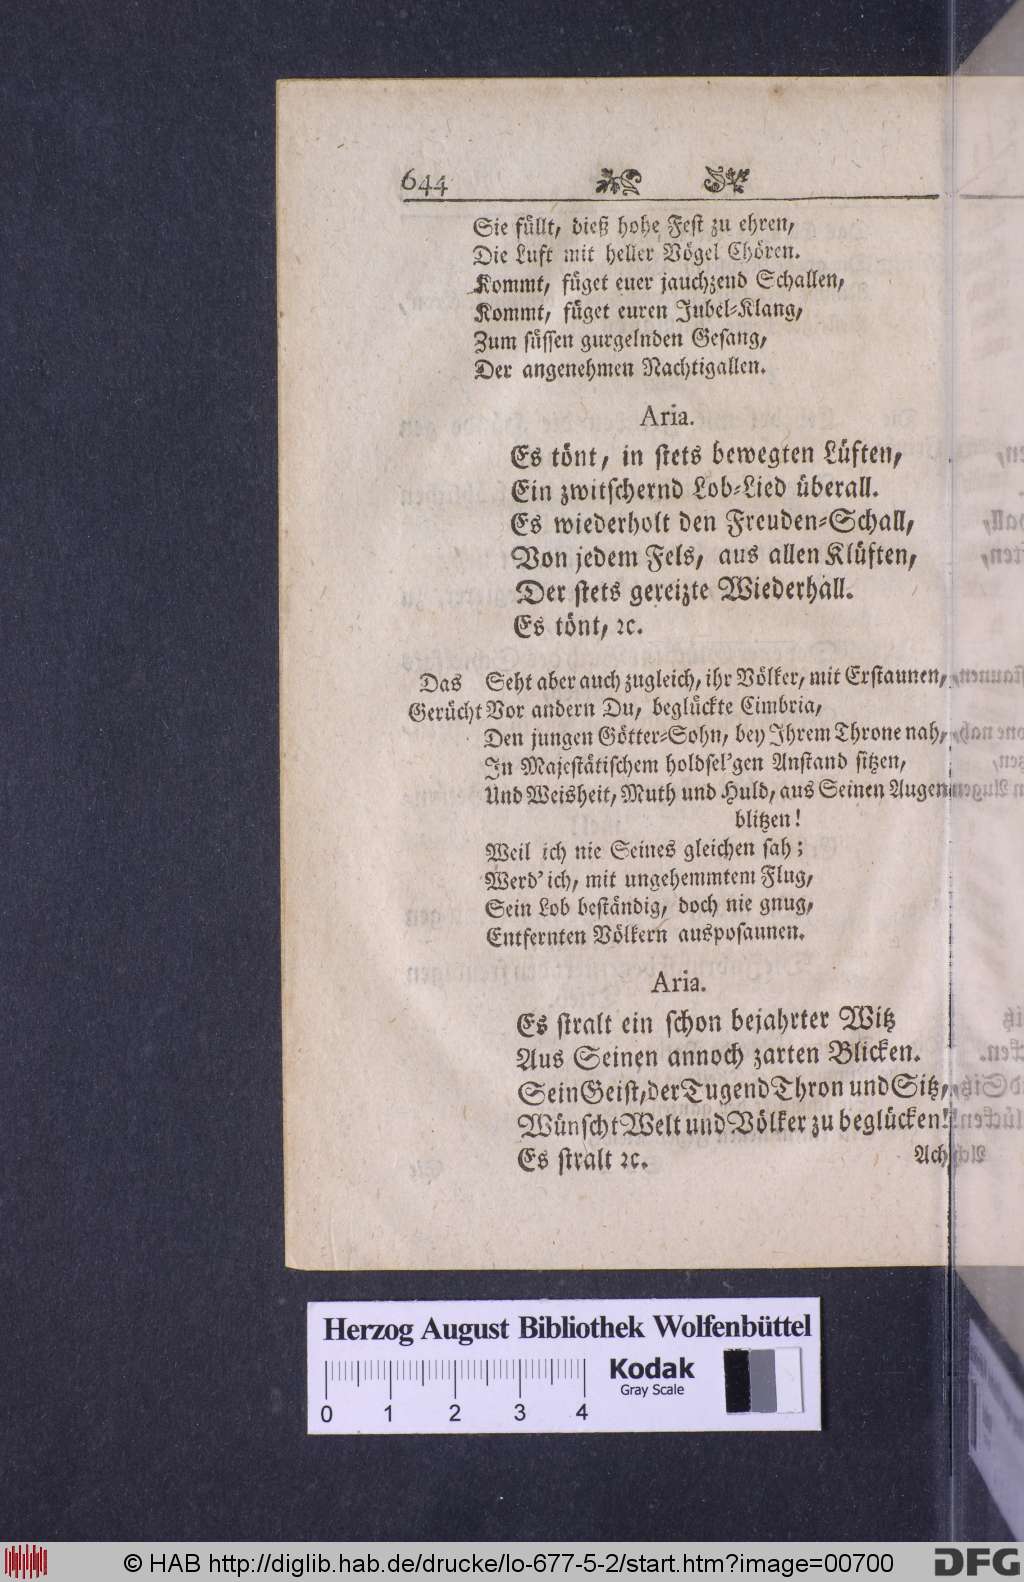 644
Sie füllt, dieß hohe Fest zu ehren,
Die Luft mit heller Vögel Chören.
Kommt, füget euer jauchzend Schallen,
Kommt, füget euren Jubel-Klang,
Zum süssen gurgelnden Gesang,
Der angenehmen Nachtigallen.
Aria.
Es tönt, in stets bewegten Lüften,
Ein zwitschernd Lob-Lied überall.
Es wiederholt den Freuden-Schall,
Von jedem Fels, aus allen Klüften,
Der stets gereizte Wiederhall.
Es tönt, ꝛc.
Das Seht aber auch zugleich, ihr Völker, mit Erstaunen,
Gerücht Vor andern Du, beglückte Cimbria,
Den jungen Götter-Sohn, bey Ihrem Throne nah,
In Majestätischem holdsel'gen Anstand sitzen,
Und Weisheit, Muth und Huld, aus Seinen Augen
blitzen!
Weil ich nie Seines gleichen sah;
Werd' ich, mit ungehemmtem Flug,
Sein Lob beständig, doch nie gnug,
Entfernten Völkern ausposaunen.
Aria.
Es stralt ein schon bejahrter Witz
Aus Seinen annoch zarten Blicken.
Sein Geist, der Tugend Thron und Sitz,
Wünscht Welt und Völker zu beglücken!
Es stralt ꝛc.
Ach
Herzog August Bibliothek Wolfenbüttel
Kodak
Gray Scale
0 1 2 3 4
© HAB http://diglib.hab.de/drucke/lo-677-5-2/start.htm?image=00700
DFG